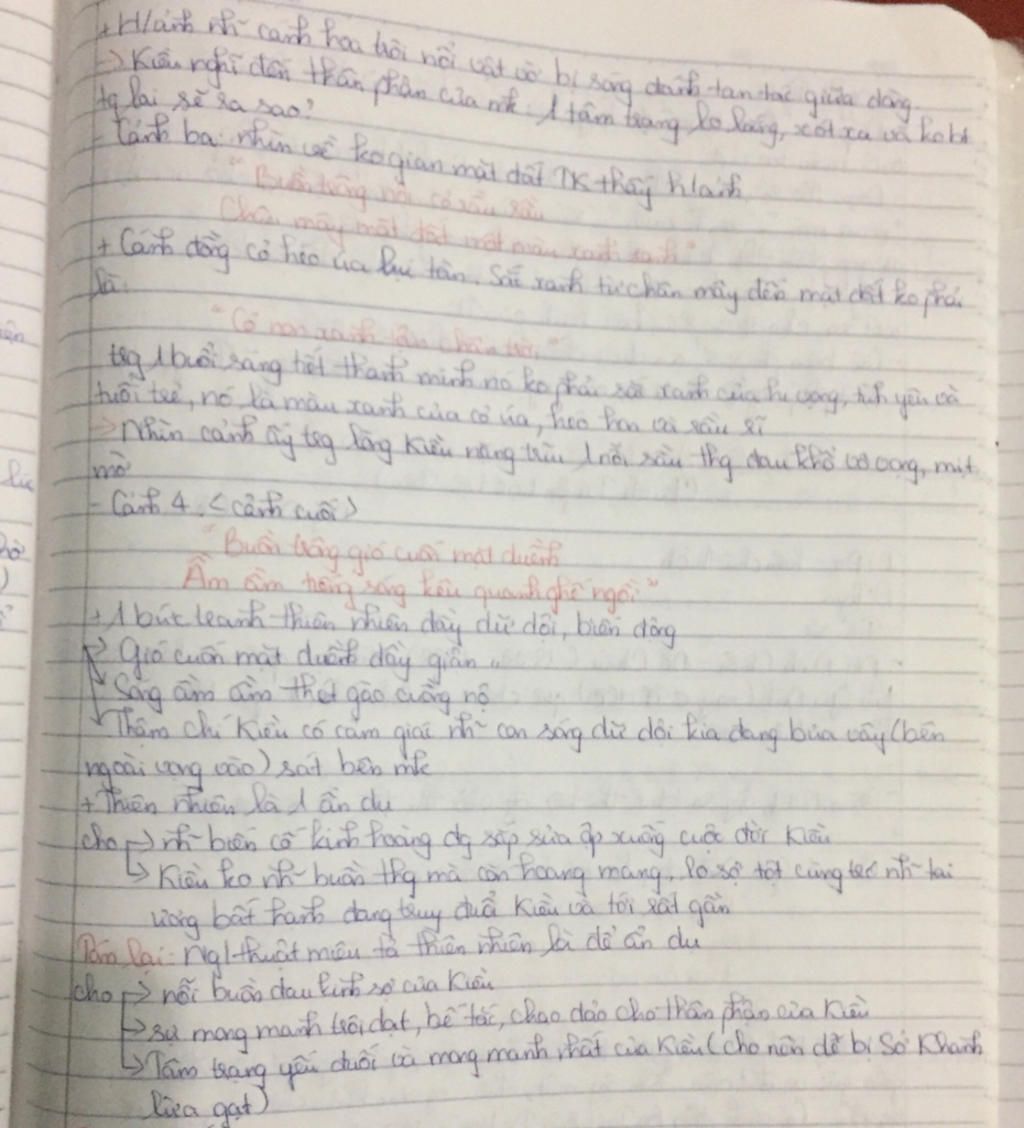 + H/ảnh nh~ cánh hoa trôi nổi vật vờ bị sóng đánh tan tác giữa dòng
-> Kiều nghĩ đến thân phận của mk 1 tâm trạng lo lắng, xót xa và ko bt
tg lai sẽ ra sao?
- Cảnh ba: nhìn về ko gian mặt đất TK thấy h/ảnh
"Buồn trông nội cỏ rầu rầu
Chân mây mặt đất một màu xanh xanh"
+ Cánh đồng cỏ héo úa lụi tàn. Sắc xanh từ chân mây đến mặt đất ko phải
là:
"Cỏ non xanh tận chân trời"
tog 1 buổi sáng tiết thanh minh nó ko phải sắc xanh của hi vọng, tình yêu và
tuổi trẻ, nó là màu xanh của cỏ úa, héo hon và sầu rĩ
-> Nhìn cảnh ấy tog lòng Kiều nặng trĩu 1 nỗi sầu thg đau khổ vô vọng, mịt
mờ
- Cảnh 4 <cảnh cuối>
"Buồn trông gió cuốn mặt duềnh
Ầm ầm tiếng sóng kêu quanh ghế ngồi"
+ 1 bức tranh thiên nhiên đầy dữ dội, biến động
-> Gió cuốn mặt duềnh đầy giận
-> Sóng ầm ầm thét gào cuồng nộ
-> Thậm chí Kiều có cảm giác nh~ con sóng dữ dội kia đang bủa vây (bên
ngoài vọng vào) sát bên mk
+ Thiên nhiên là 1 ẩn dụ
cho -> nh~ biến cố kinh hoàng đg sắp sửa ập xuống cuộc đời Kiều
-> Kiều ko nh~ buồn thg mà còn hoang mang, lo sợ tột cùng trc nh~ tai
ương bất hạnh đang truy đuổi Kiều và tới rất gần
Tóm lại: Ngl thuật miêu tả thiên nhiên là để ẩn dụ
cho -> nỗi buồn đau kinh sợ của Kiều
-> sự mong manh trôi dạt, bế tắc, chao đảo cho thân phận của Kiều
-> Tâm trạng yếu đuối và mong manh nhất của Kiều (cho nên dễ bị Sở Khanh
lừa gạt)